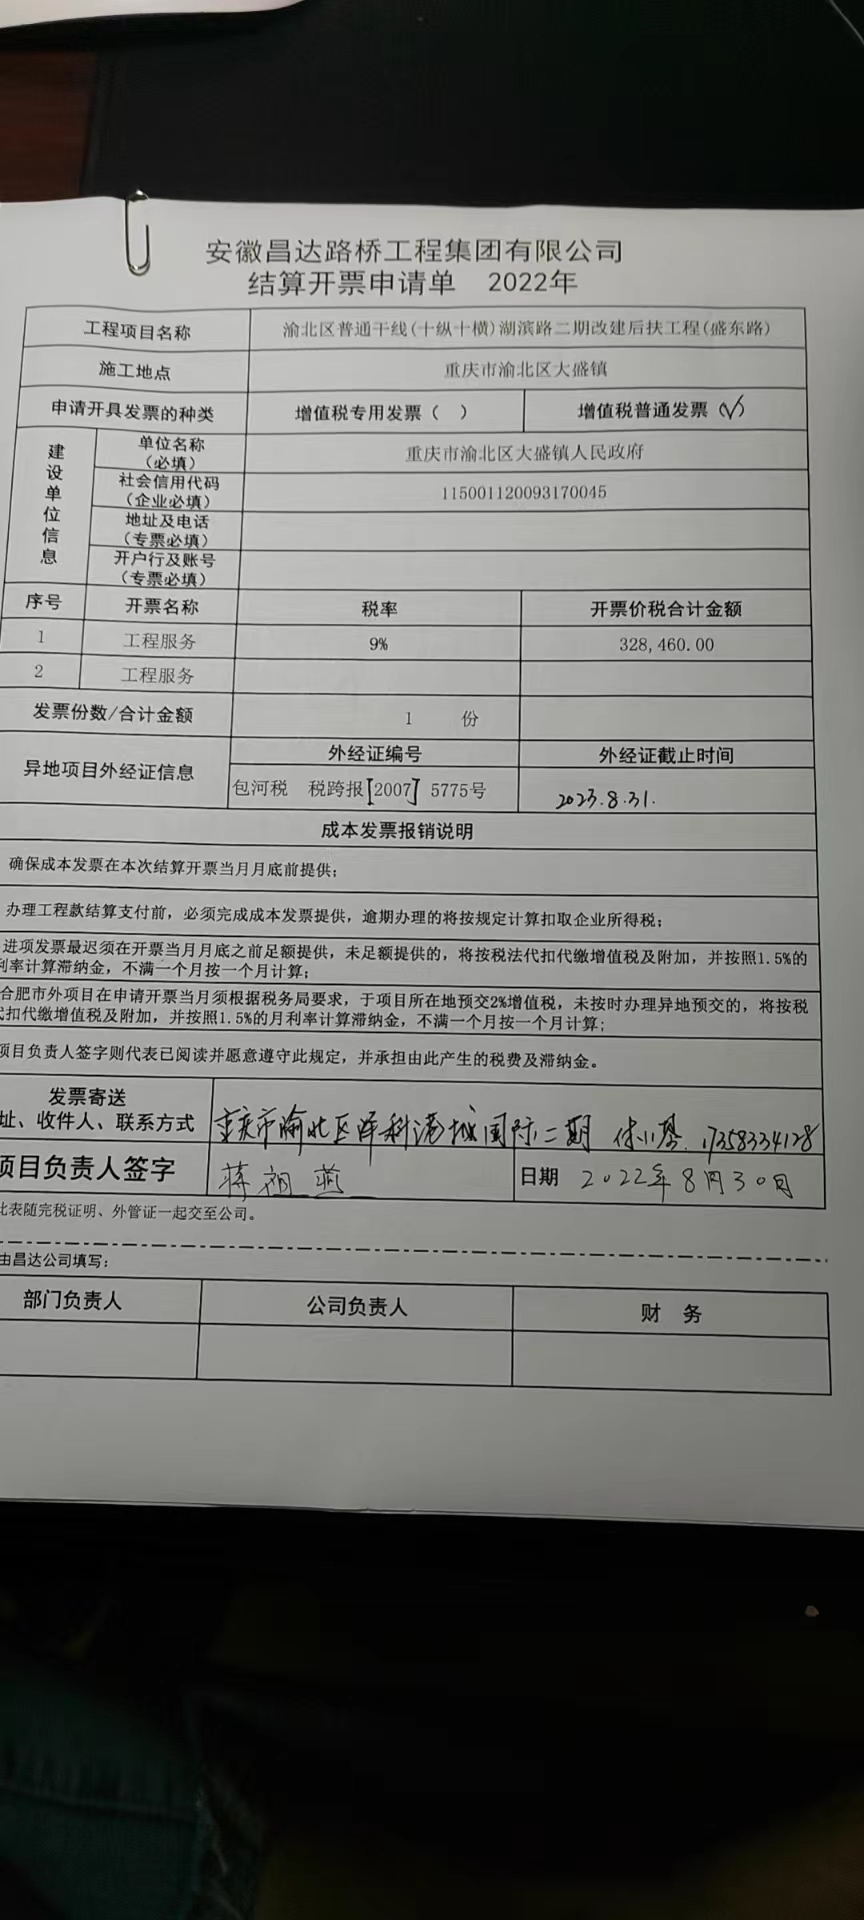 安徽昌达路桥工程集团有限公司
结算开票申请单 2022年
工程项目名称 渝北区普通干线(十纵十横)湖滨路二期改建后扶工程(盛东路)
施工地点 重庆市渝北区大盛镇
申请开具发票的种类 增值税专用发票( ) 增值税普通发票(√)
建设单位信息
单位名称(必填) 重庆市渝北区大盛镇人民政府
社会信用代码(企业必填) 115001120093170045
地址及电话(专票必填)
开户行及账号(专票必填)
序号 开票名称 税率 开票价税合计金额
1 工程服务 9% 328,460.00
2 工程服务
发票份数/合计金额 1 份
异地项目外经证信息 外经证编号 外经证截止时间
包河税 税跨报[2007] 5775号 2023.8.31.
成本发票报销说明
确保成本发票在本次结算开票当月月底前提供;
办理工程款结算支付前，必须完成成本发票提供，逾期办理的将按规定计算扣取企业所得税;
进项发票最迟须在开票当月月底之前足额提供，未足额提供的，将按税法代扣代缴增值税及附加，并按照1.5%的
利率计算滞纳金，不满一个月按一个月计算;
合肥市外项目在申请开票当月须根据税务局要求，于项目所在地预交2%增值税，未按时办理异地预交的，将按税
扣代缴增值税及附加，并按照1.5%的月利率计算滞纳金，不满一个月按一个月计算;
项目负责人签字则代表已阅读并愿意遵守此规定，并承担由此产生的税费及滞纳金。
发票寄送
址、收件人、联系方式 重庆市渝北区泽科港城国际二期 17358334128
项目负责人签字 蒋祖燕 日期 2022年8月30日
此表随完税证明、外管证一起交至公司。
由昌达公司填写:
部门负责人 公司负责人 财 务